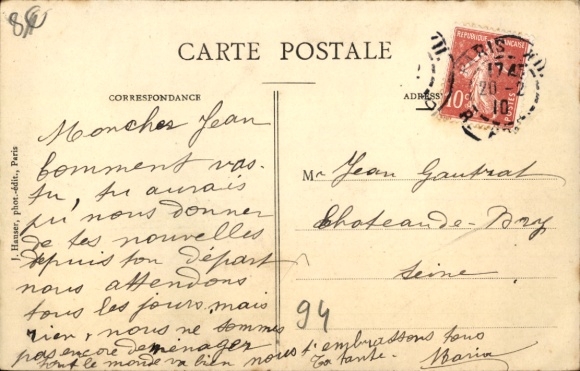 84
CARTE POSTALE
CORRESPONDANCE
ADRESSE
REPUBLIQUE FRANÇAISE
10c
POSTES
PARIS
17 45
20-2
10
J. Hauser, phot.-édit., Paris
Mon cher Jean
Comment vas-
tu, tu aurais
pu nous donner
de tes nouvelles
depuis ton départ
nous attendons
tous les jours mais
rien, nous ne sommes
pas encore deménager
tout le monde va bien nous t'embrassons tous
Ta tante - Maria
Mr Jean Gautrat
Chateau de - Bry
Seine
94